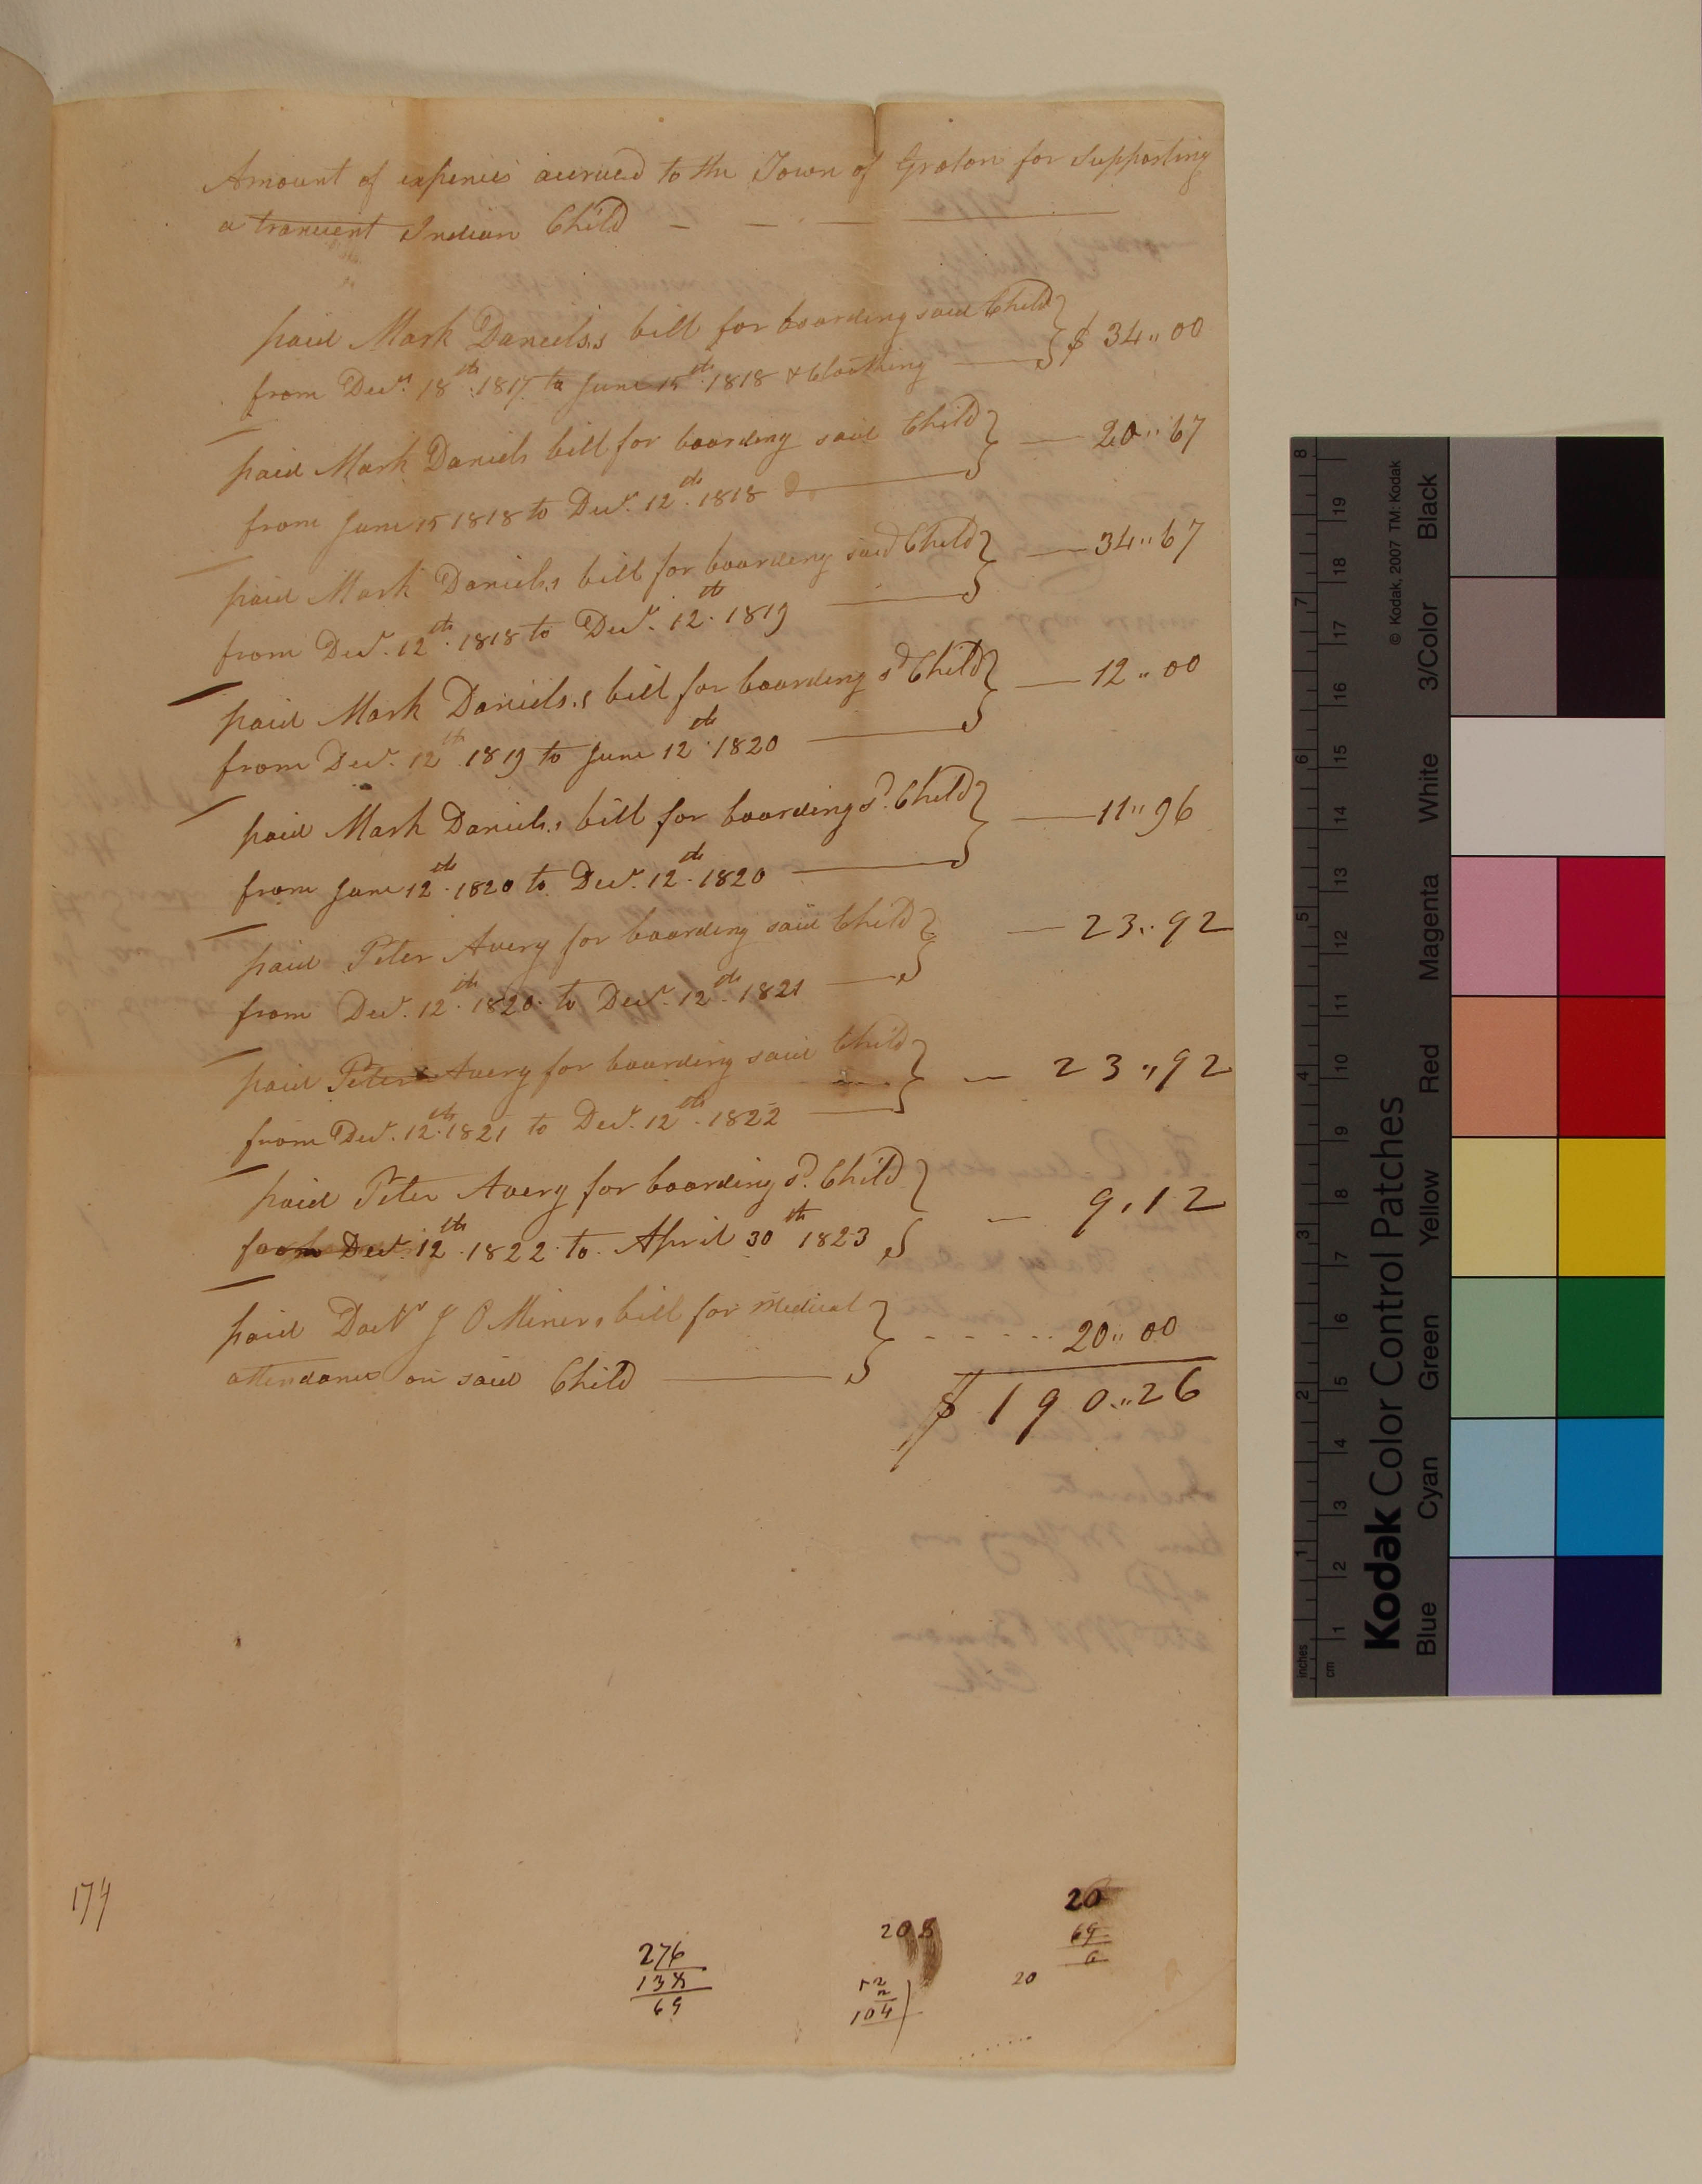 Amount of expenses accrued to the Town of Groton for Supporting
a transient Indian Child
paid Mark Daniels,s bill for boarding said Child
from Decr. 18th. 1817 to June 15th. 1818 & Cloathing
$ 34,,00
paid Mark Daniels bill for boarding said Child
from June 15 1818 to Decr. 12th. 1818
20,,67
paid Mark Daniels,s bill for boarding said Child
from Decr. 12th. 1818 to Decr. 12th. 1819
34,,67
paid Mark Daniels,s bill for boarding sd Child
from Decr. 12th 1819 to June 12th. 1820
12,,00
paid Mark Daniels,s bill for boarding sd. Child
from June 12th. 1820 to Decr. 12th. 1820
11,,96
paid Peter Avery for boarding said Child
from Decr. 12th. 1820 to Decr. 12th. 1821
23,,92
paid Peter Avery for boarding said Child
from Decr. 12th. 1821 to Decr. 12th. 1822
23,,92
paid Peter Avery for boarding sd. Child
from Decr. 12th. 1822 to April 30th 1823
9,12
paid Doctr J O Miners bill for Medical
attendance on said Child
20,,00
$ 190,,26
174
276
138
69
208
52
2
104
20
69
6
20
8
7
6
5
4
3
2
1
inches
19
18
17
16
15
14
13
12
11
10
9
8
7
6
5
4
3
2
1
cm
© Kodak, 2007 TM: Kodak
Kodak Color Control Patches
Blue
Cyan
Green
Yellow
Red
Magenta
White
3/Color
Black